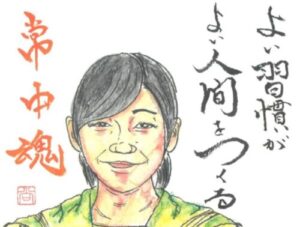 よい習慣が
よい人間をつくる
常中魂